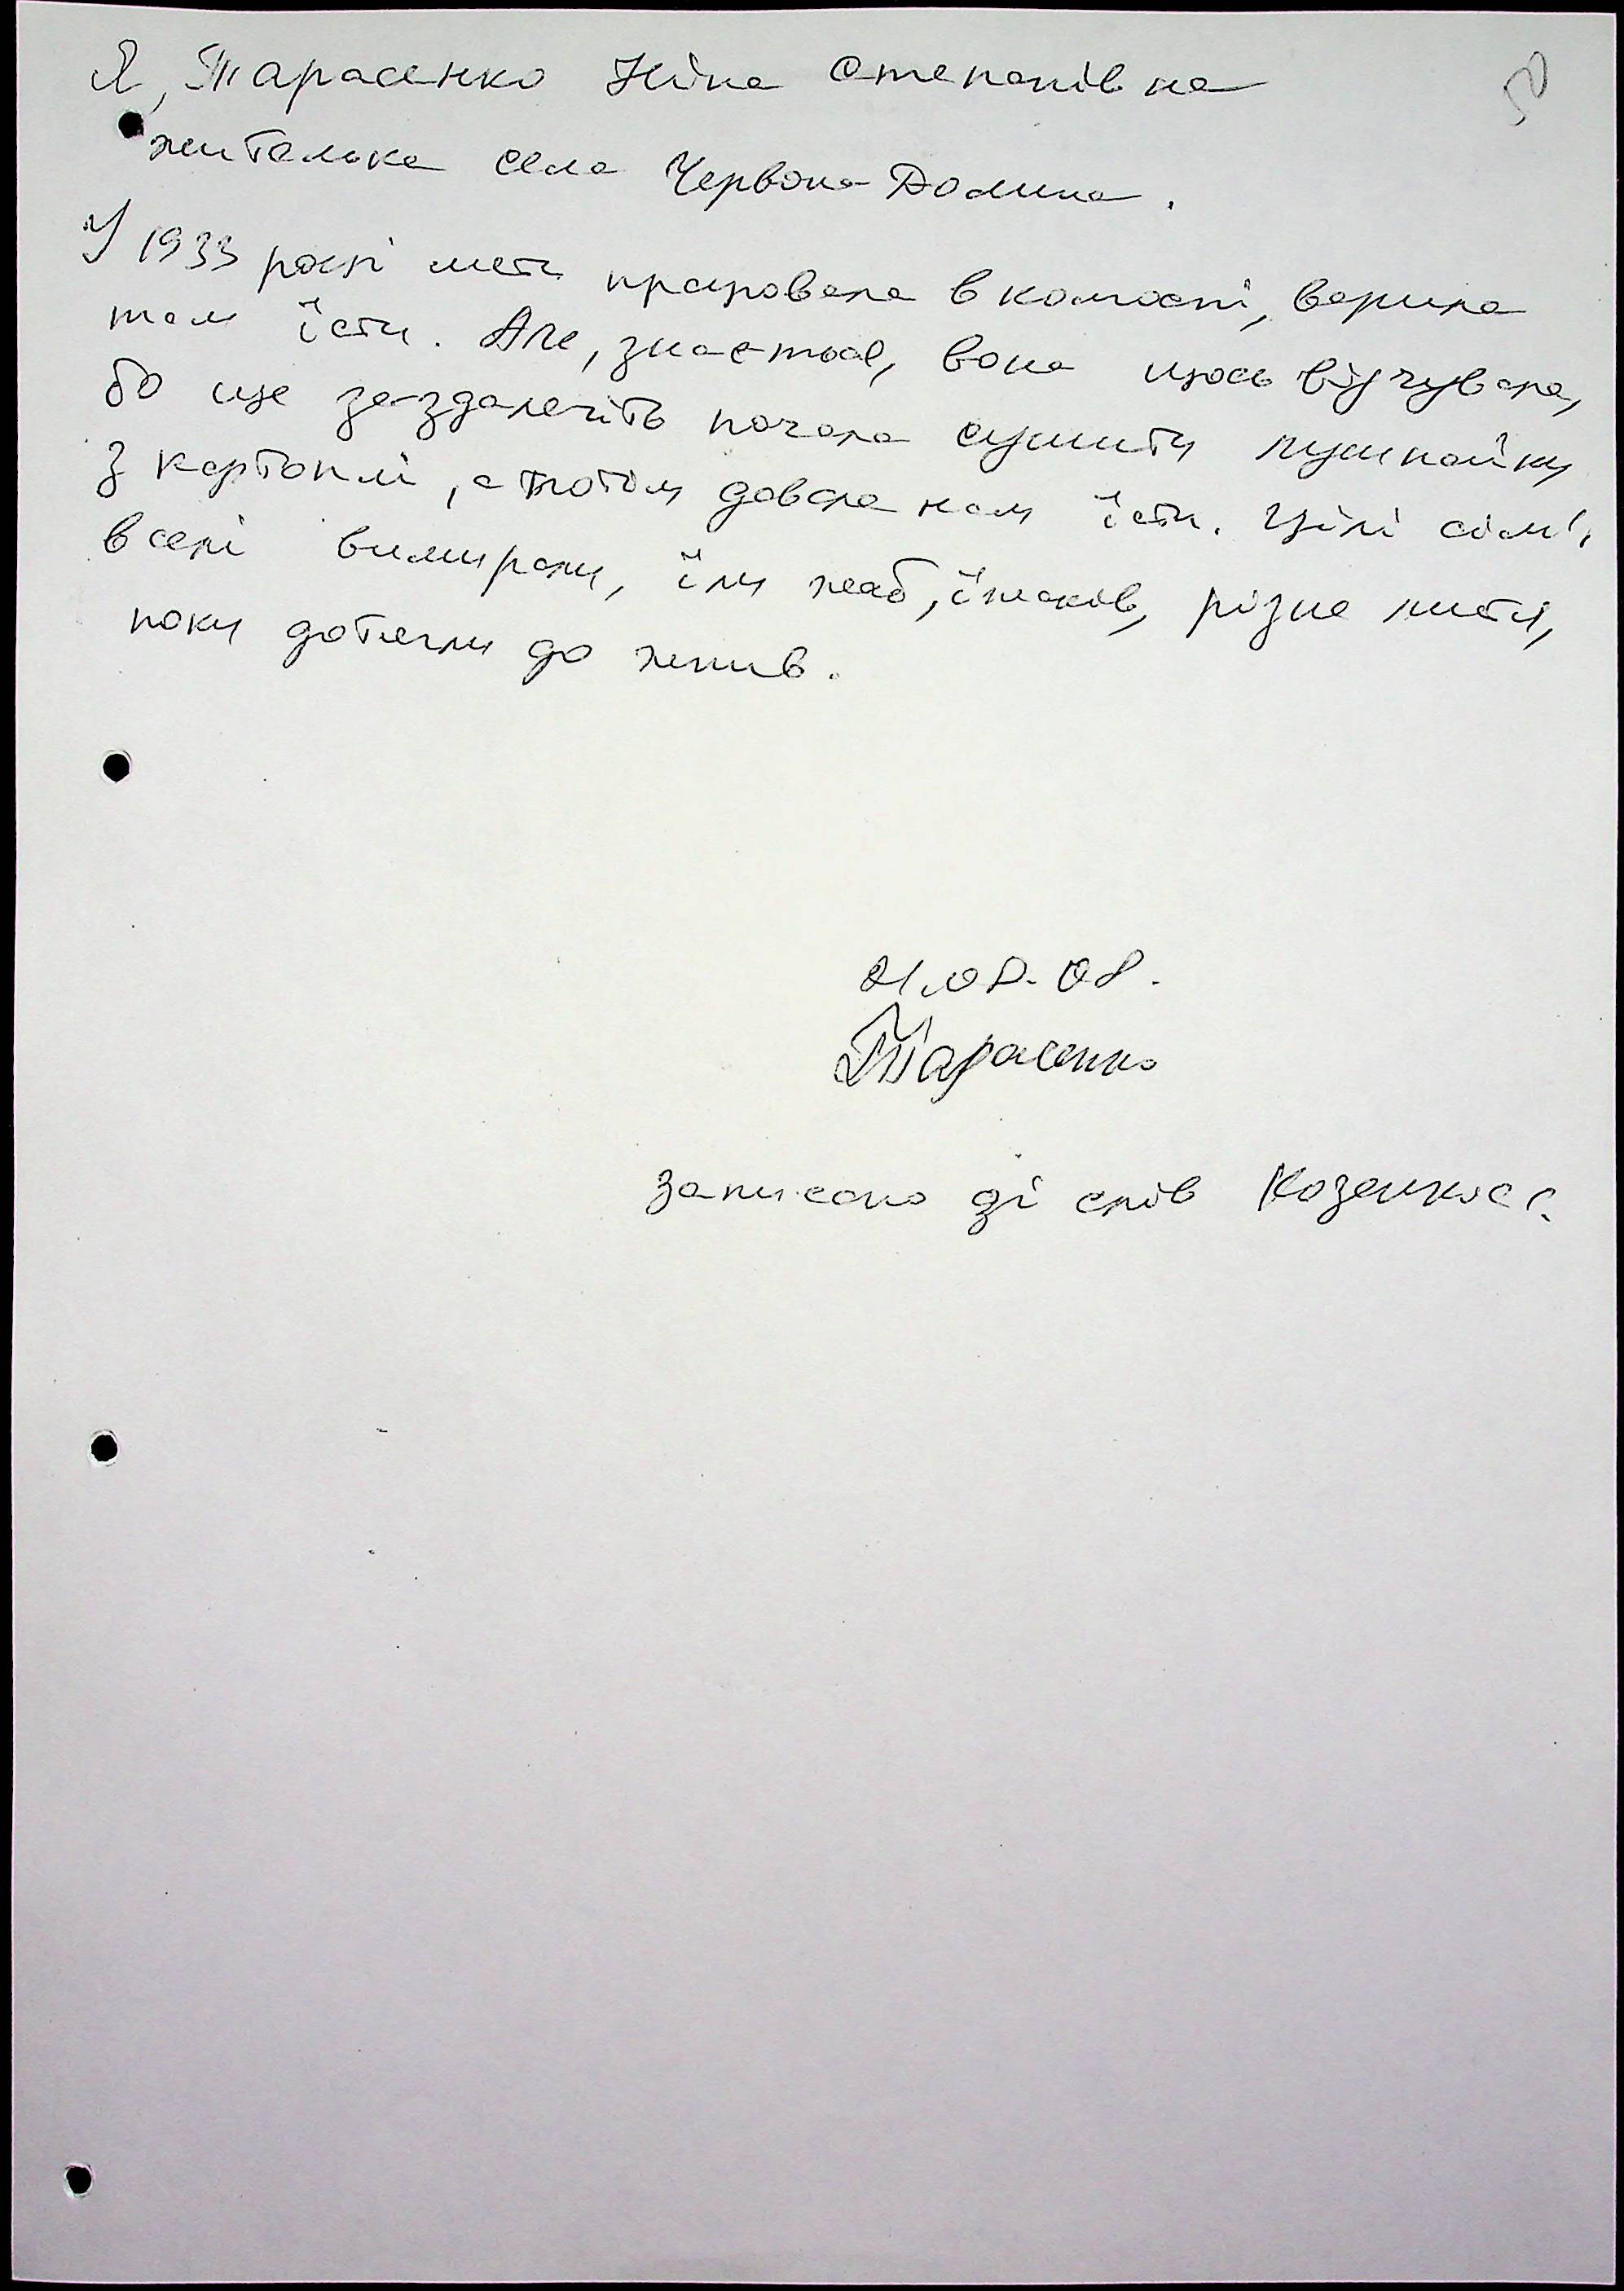 50
Я, Тарасенко Ніна Степанівна
жителька села Червона Долина.
У 1933 році мати працювала в колгоспі, варила
там їсти. Але, знаєтьсе, вона щось відчувала,
бо ще заздалегіть почала сушити лушпайки
з картоплі, а потом давала нам їсти. Цілі сім'ї
в селі вимирали, їли жаб, їжаків, різне листя,
поки дотягли до жнив.
08.
Тарасенко
записано зі слів